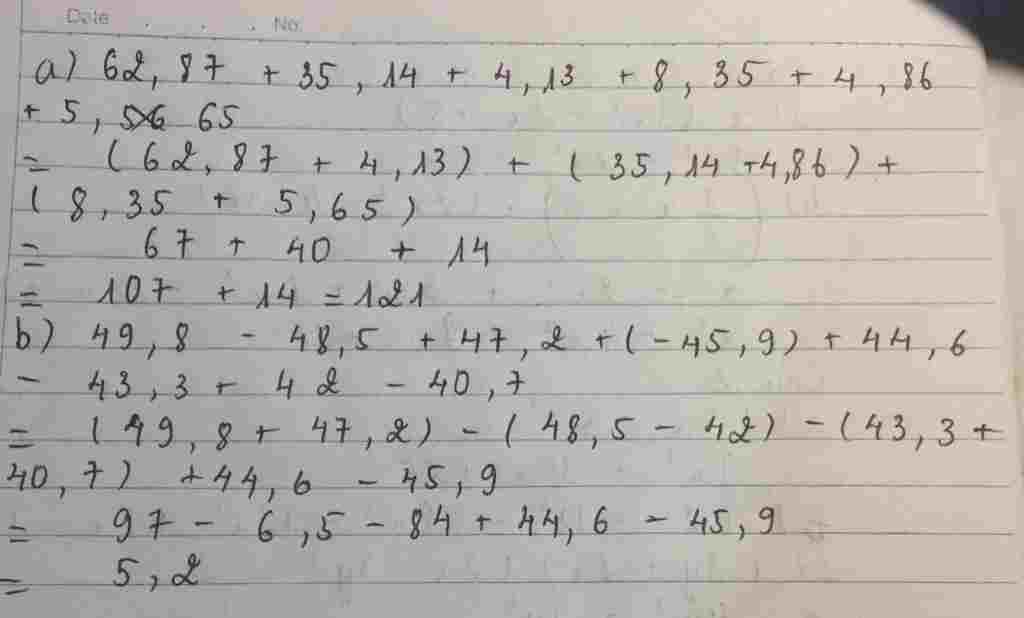 Date . . . No.
a) 62,87 + 35,14 + 4,13 + 8,35 + 4,86
+ 5, 65
= (62,87 + 4,13) + (35,14 + 4,86) +
(8,35 + 5,65)
= 67 + 40 + 14
= 107 + 14 = 121
b) 49,8 - 48,5 + 47,2 + (-45,9) + 44,6
- 43,3 + 42 - 40,7
= (49,8 + 47,2) - (48,5 - 42) - (43,3 +
40,7) + 44,6 - 45,9
= 97 - 6,5 - 84 + 44,6 - 45,9
= 5,2